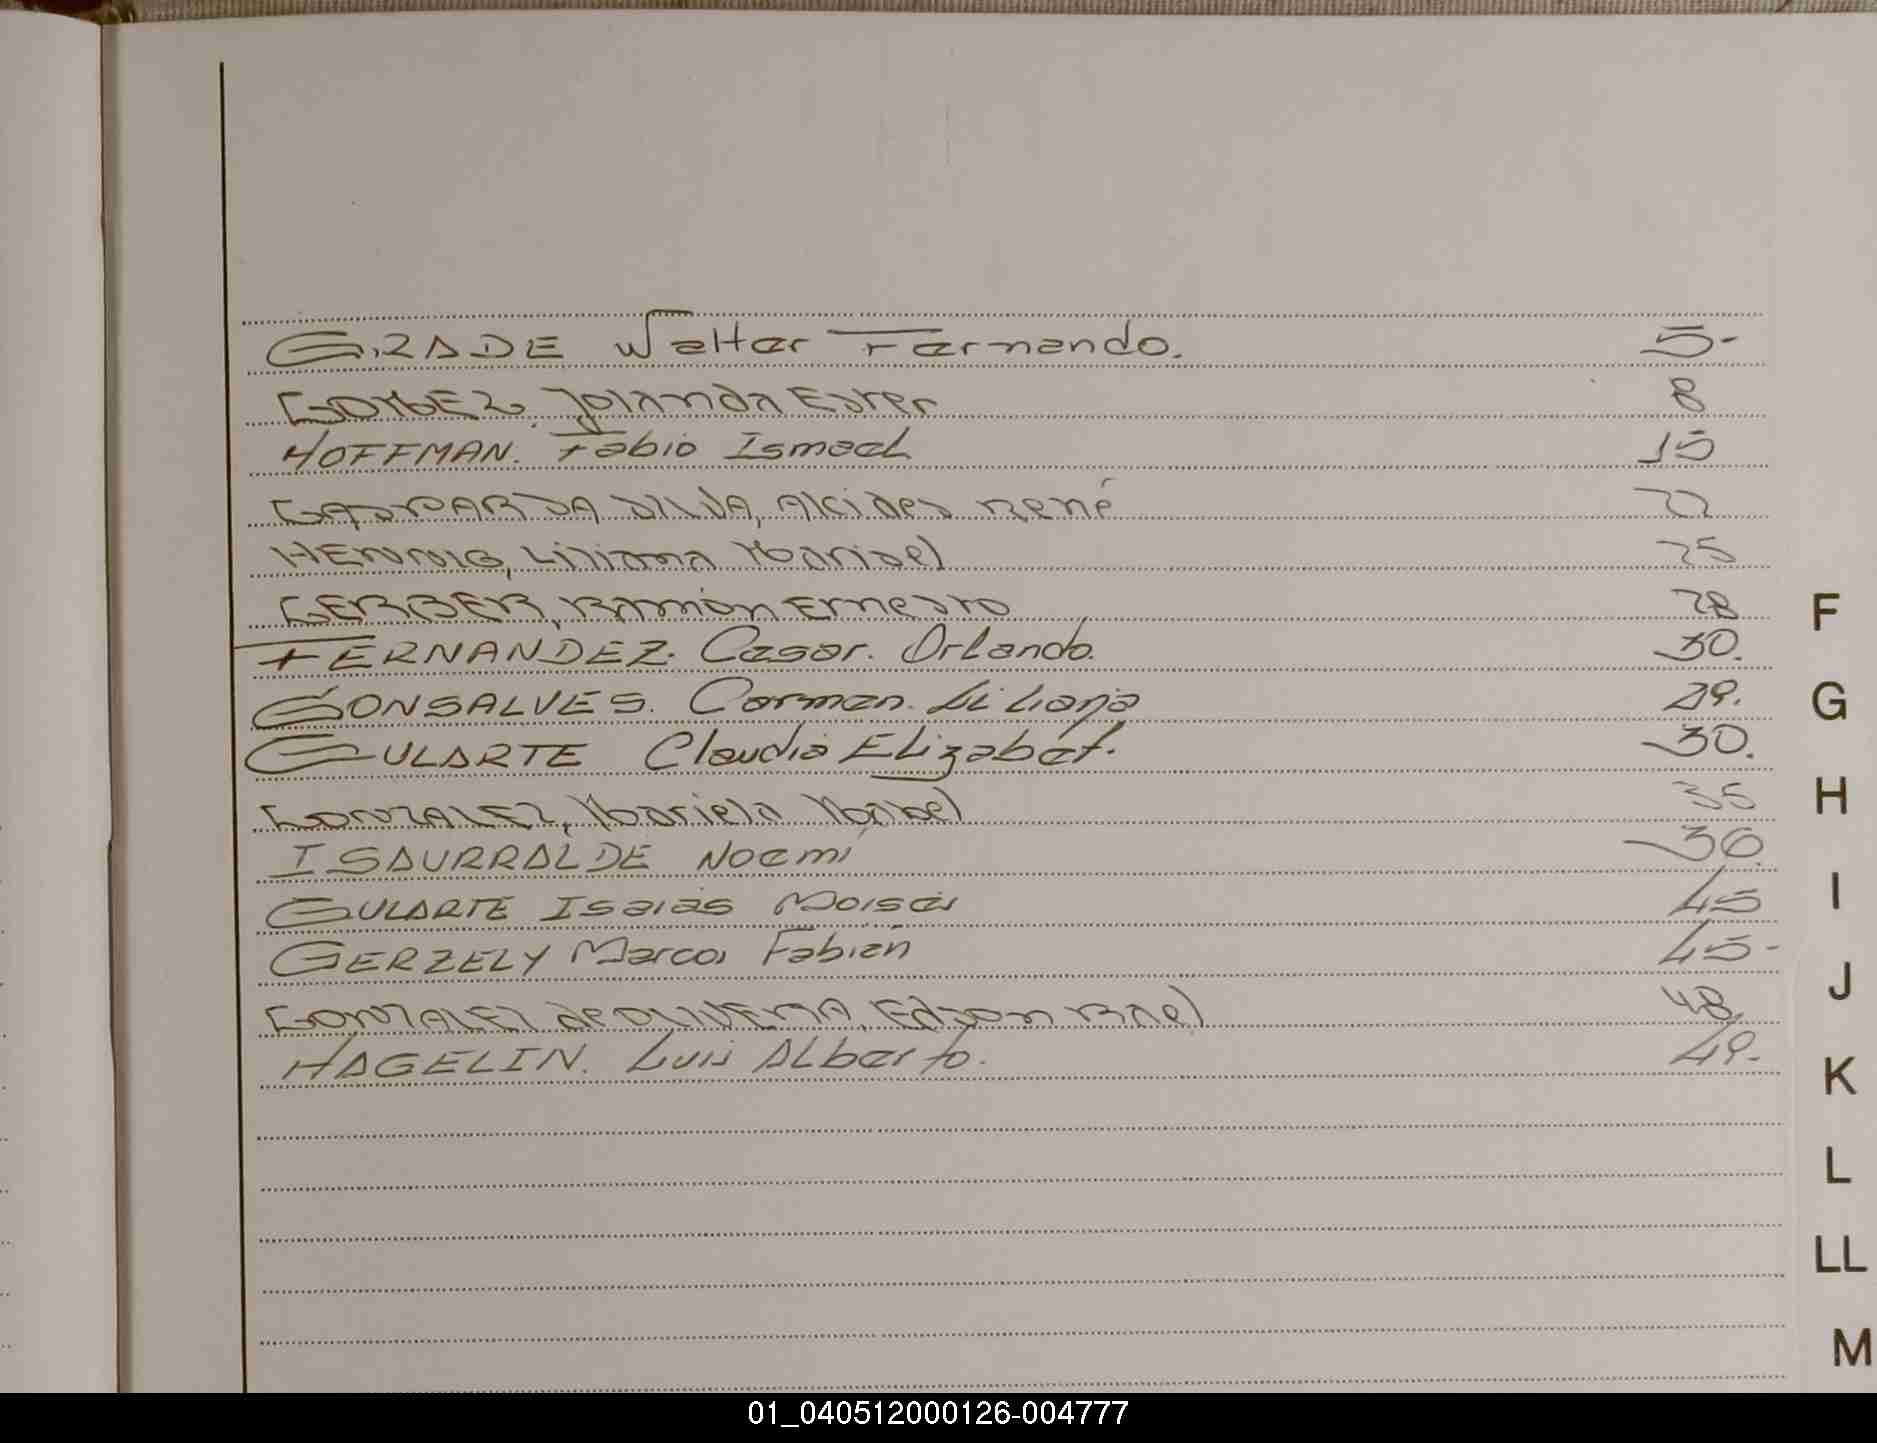 GRADE Walter Fernando. 5-
GOMEZ, Yolanda Ester 8
HOFFMAN. Fabio Ismael 15
GASPAR DA SILVA, Alcides René 22
HENNIG, Liliana Marisel 25
GERBER, Ramón Ernesto 28
FERNANDEZ. Cesar. Orlando. 30.
GONSALVES. Carmen. Liliana 29.
GULARTE Claudia Elizabet. 30.
GONZALEZ, Mariela Mabel 35
ISAURRALDE Noemi 30
GULARTE Isaias Moises 45
GERZELY Marcos Fabián 45-
GONZALEZ de OLIVERA, Edson Riel 48
HAGELIN. Luis Alberto. 49.
F
G
H
I
J
K
L
LL
M
01_040512000126-004777